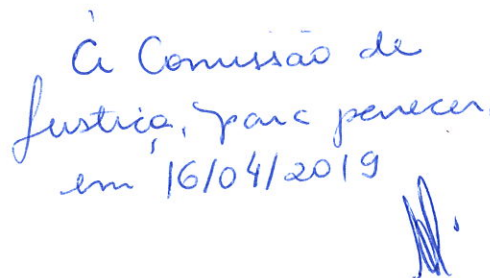 À Comissão de
Justiça, para parecer,
em 16/04/2019